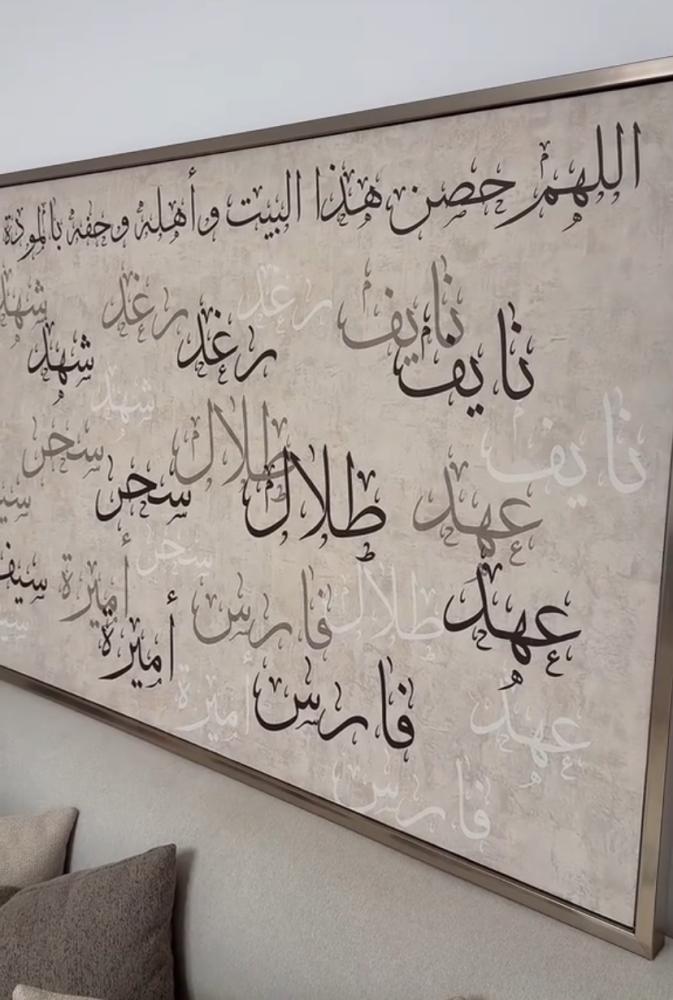 اللهم حصن هذا البيت وأهله وحفه بالمودة
نايف رغد رغد شهد
نايف رغد شهد
نايف شهد
عهد طلال سحر
طلال سحر
عهد طلال سحر
فارس أميرة سيف
فارس أميرة
عهد أميرة
فارس